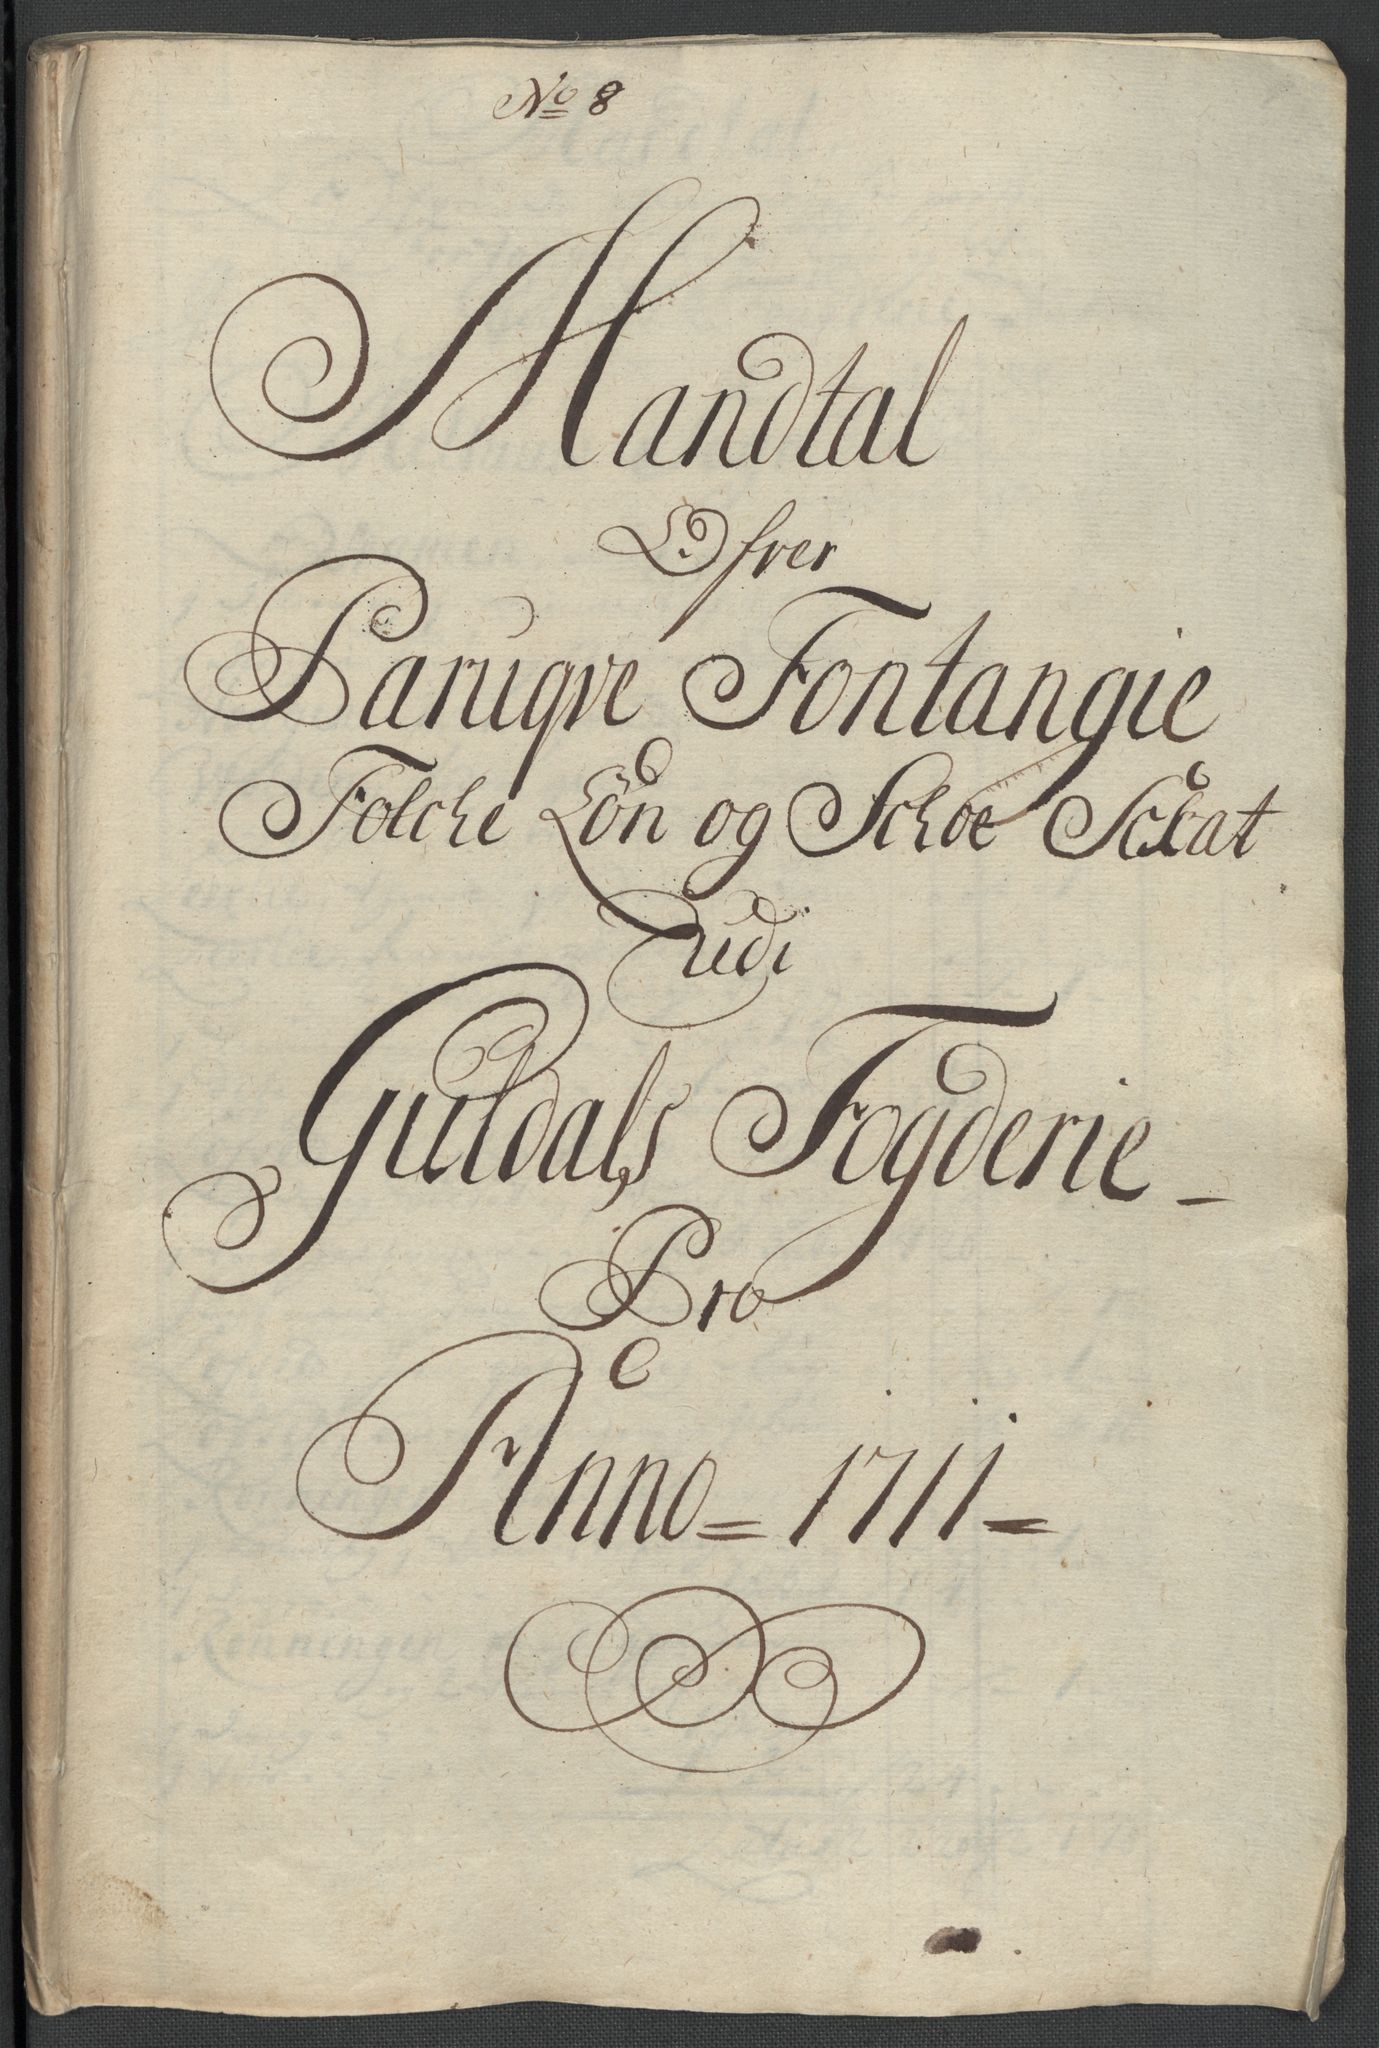 No 8
Mandtal
Ofver
Paruqve Fontangie
Folche Løn og Schoe Schat
udi
Guldals Fogderie
Pro
Anno 1711